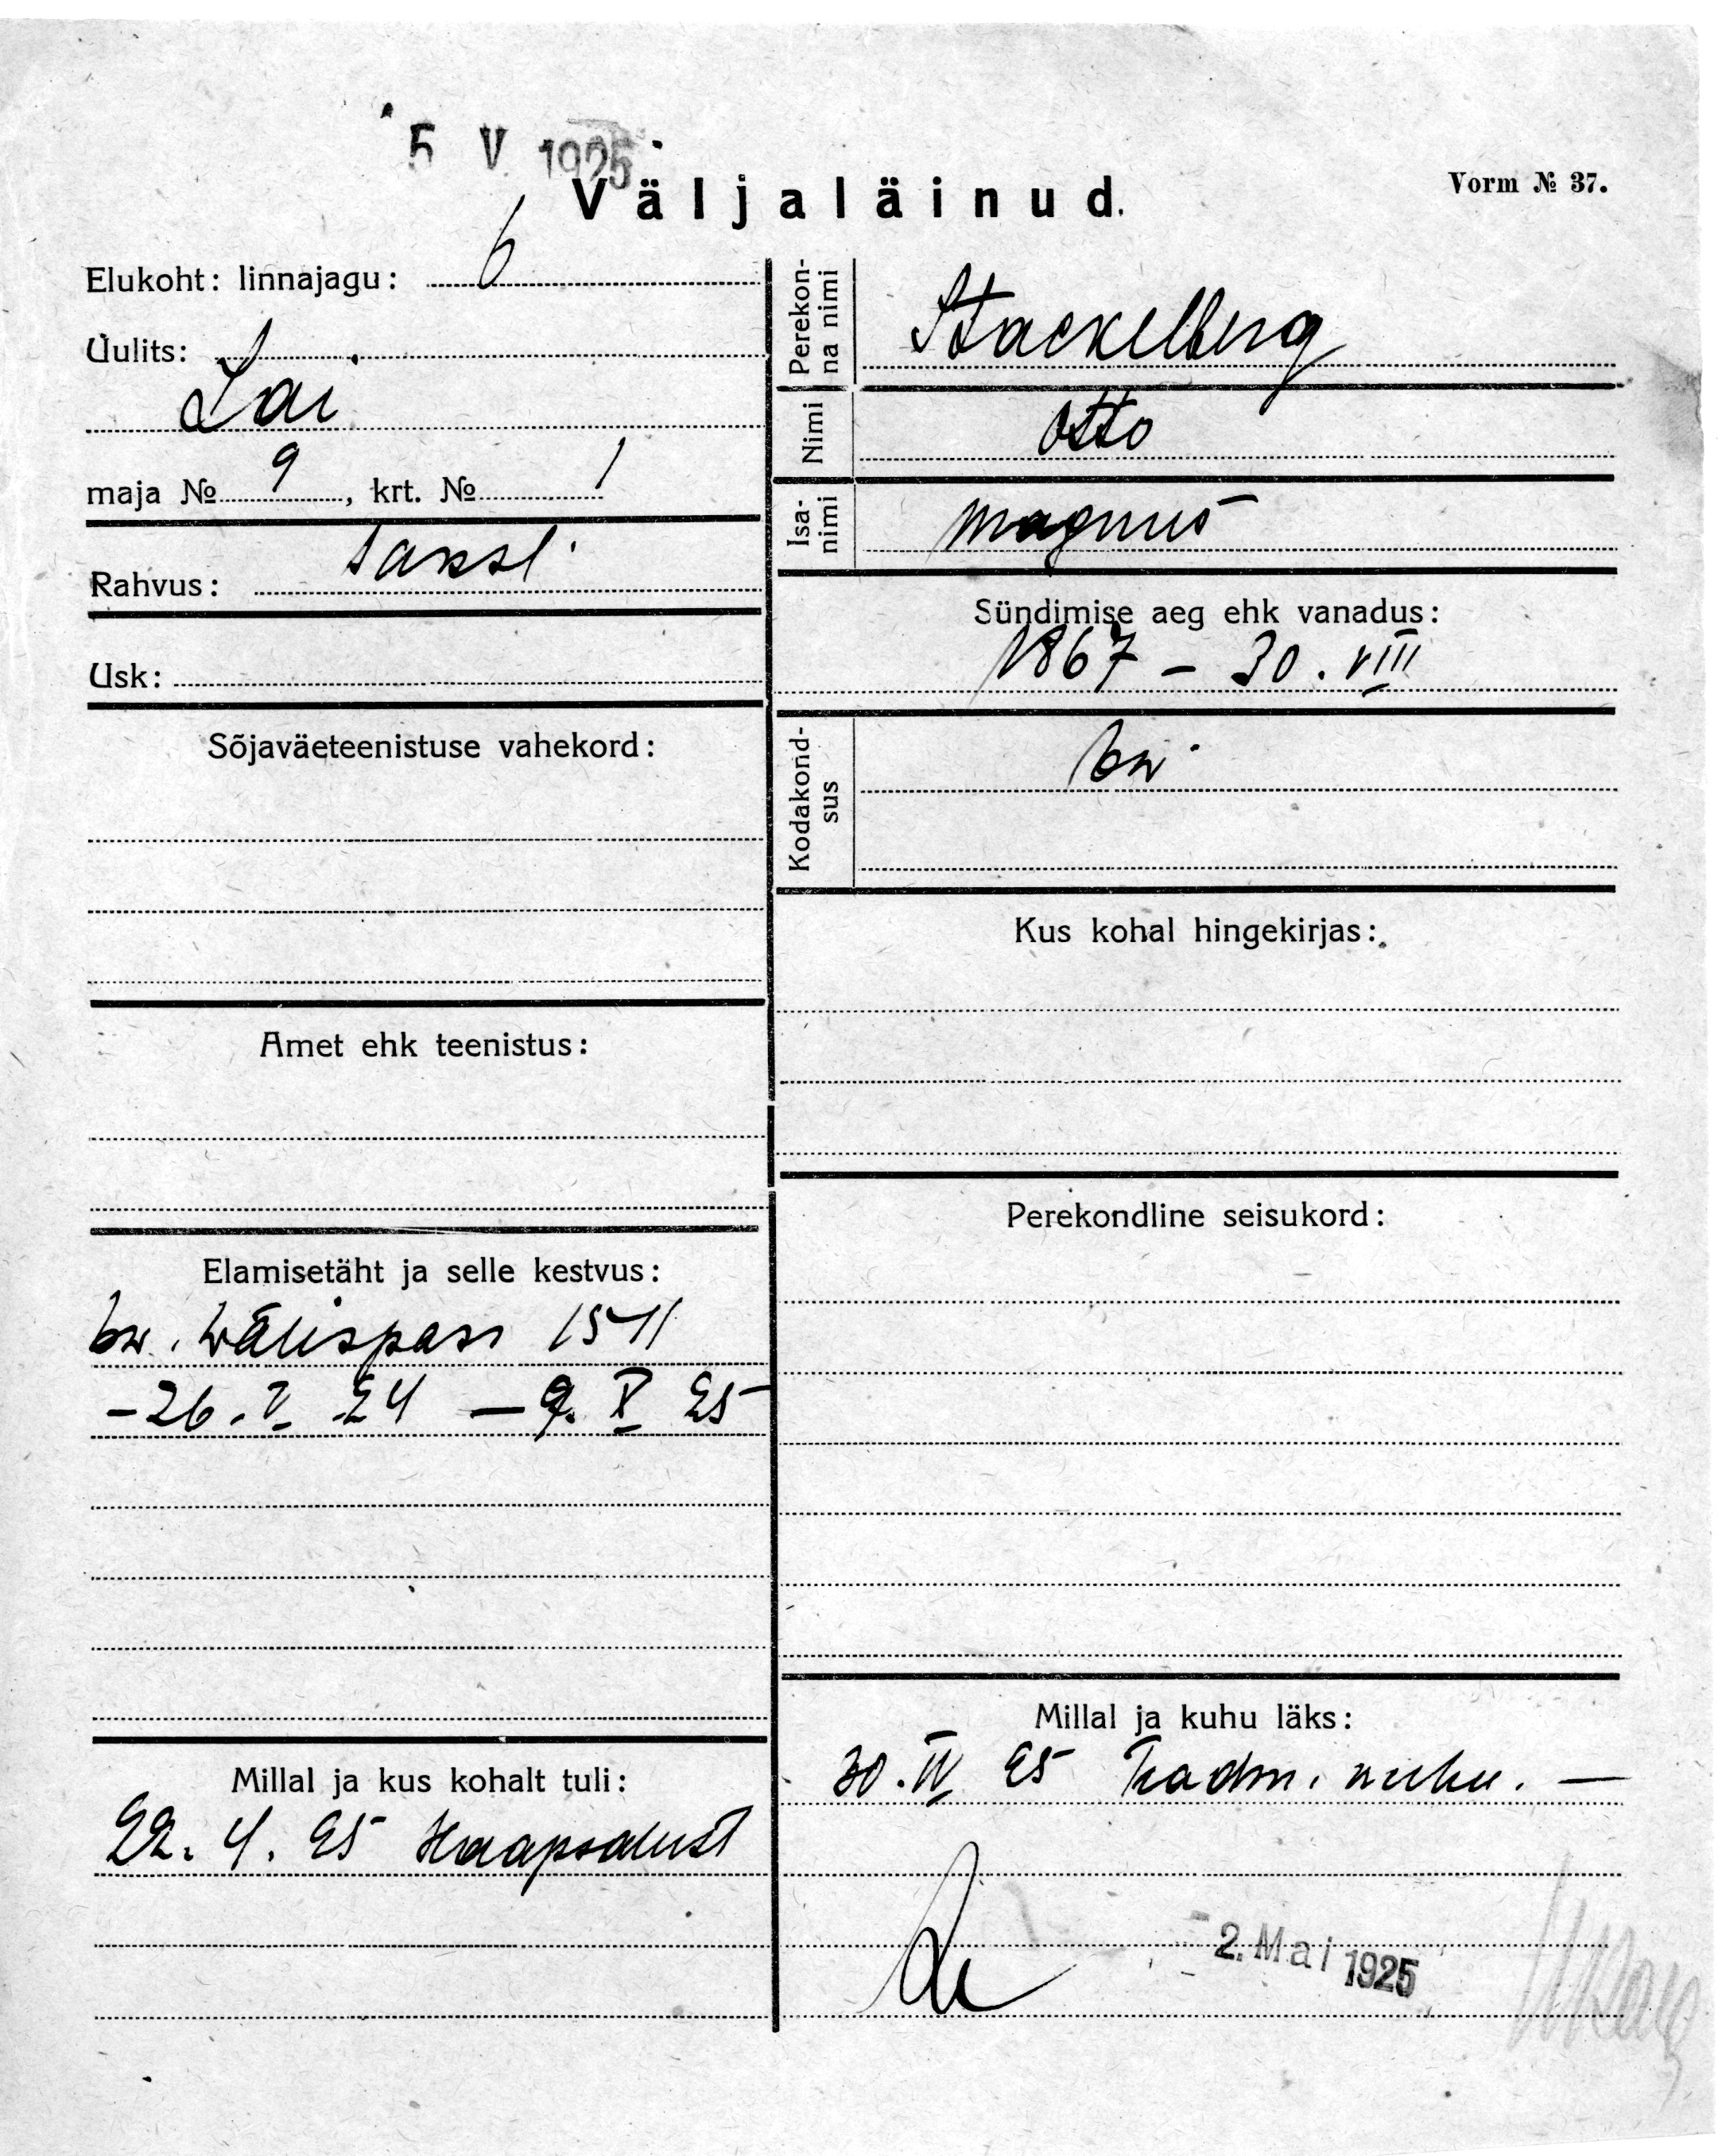 5 V 1925
Väljaläinud.
Vorm № 37.
Elukoht: linnajagu: 6
Uulits:
Lai
maja № 9, krt. № 1
Rahvus: saksl.
Usk:
Sõjaväeteenistuse vahekord:
Amet ehk teenistus:
Elamisetäht ja selle kestvus:
bw. Wälispass 1511
-26. V 24 — 9. X 25
Millal ja kus kohalt tuli:
22. 4. 25 Haapsalust
Perekonna nimi
Stackelberg
Nimi
Otto
Isanimi
Magnus
Sündimise aeg ehk vanadus:
1867 - 30. VIII
Kodakondsus
bw
Kus kohal hingekirjas:
Perekondline seisukord:
Millal ja kuhu läks:
30. IV 25 —
2. Mai 1925